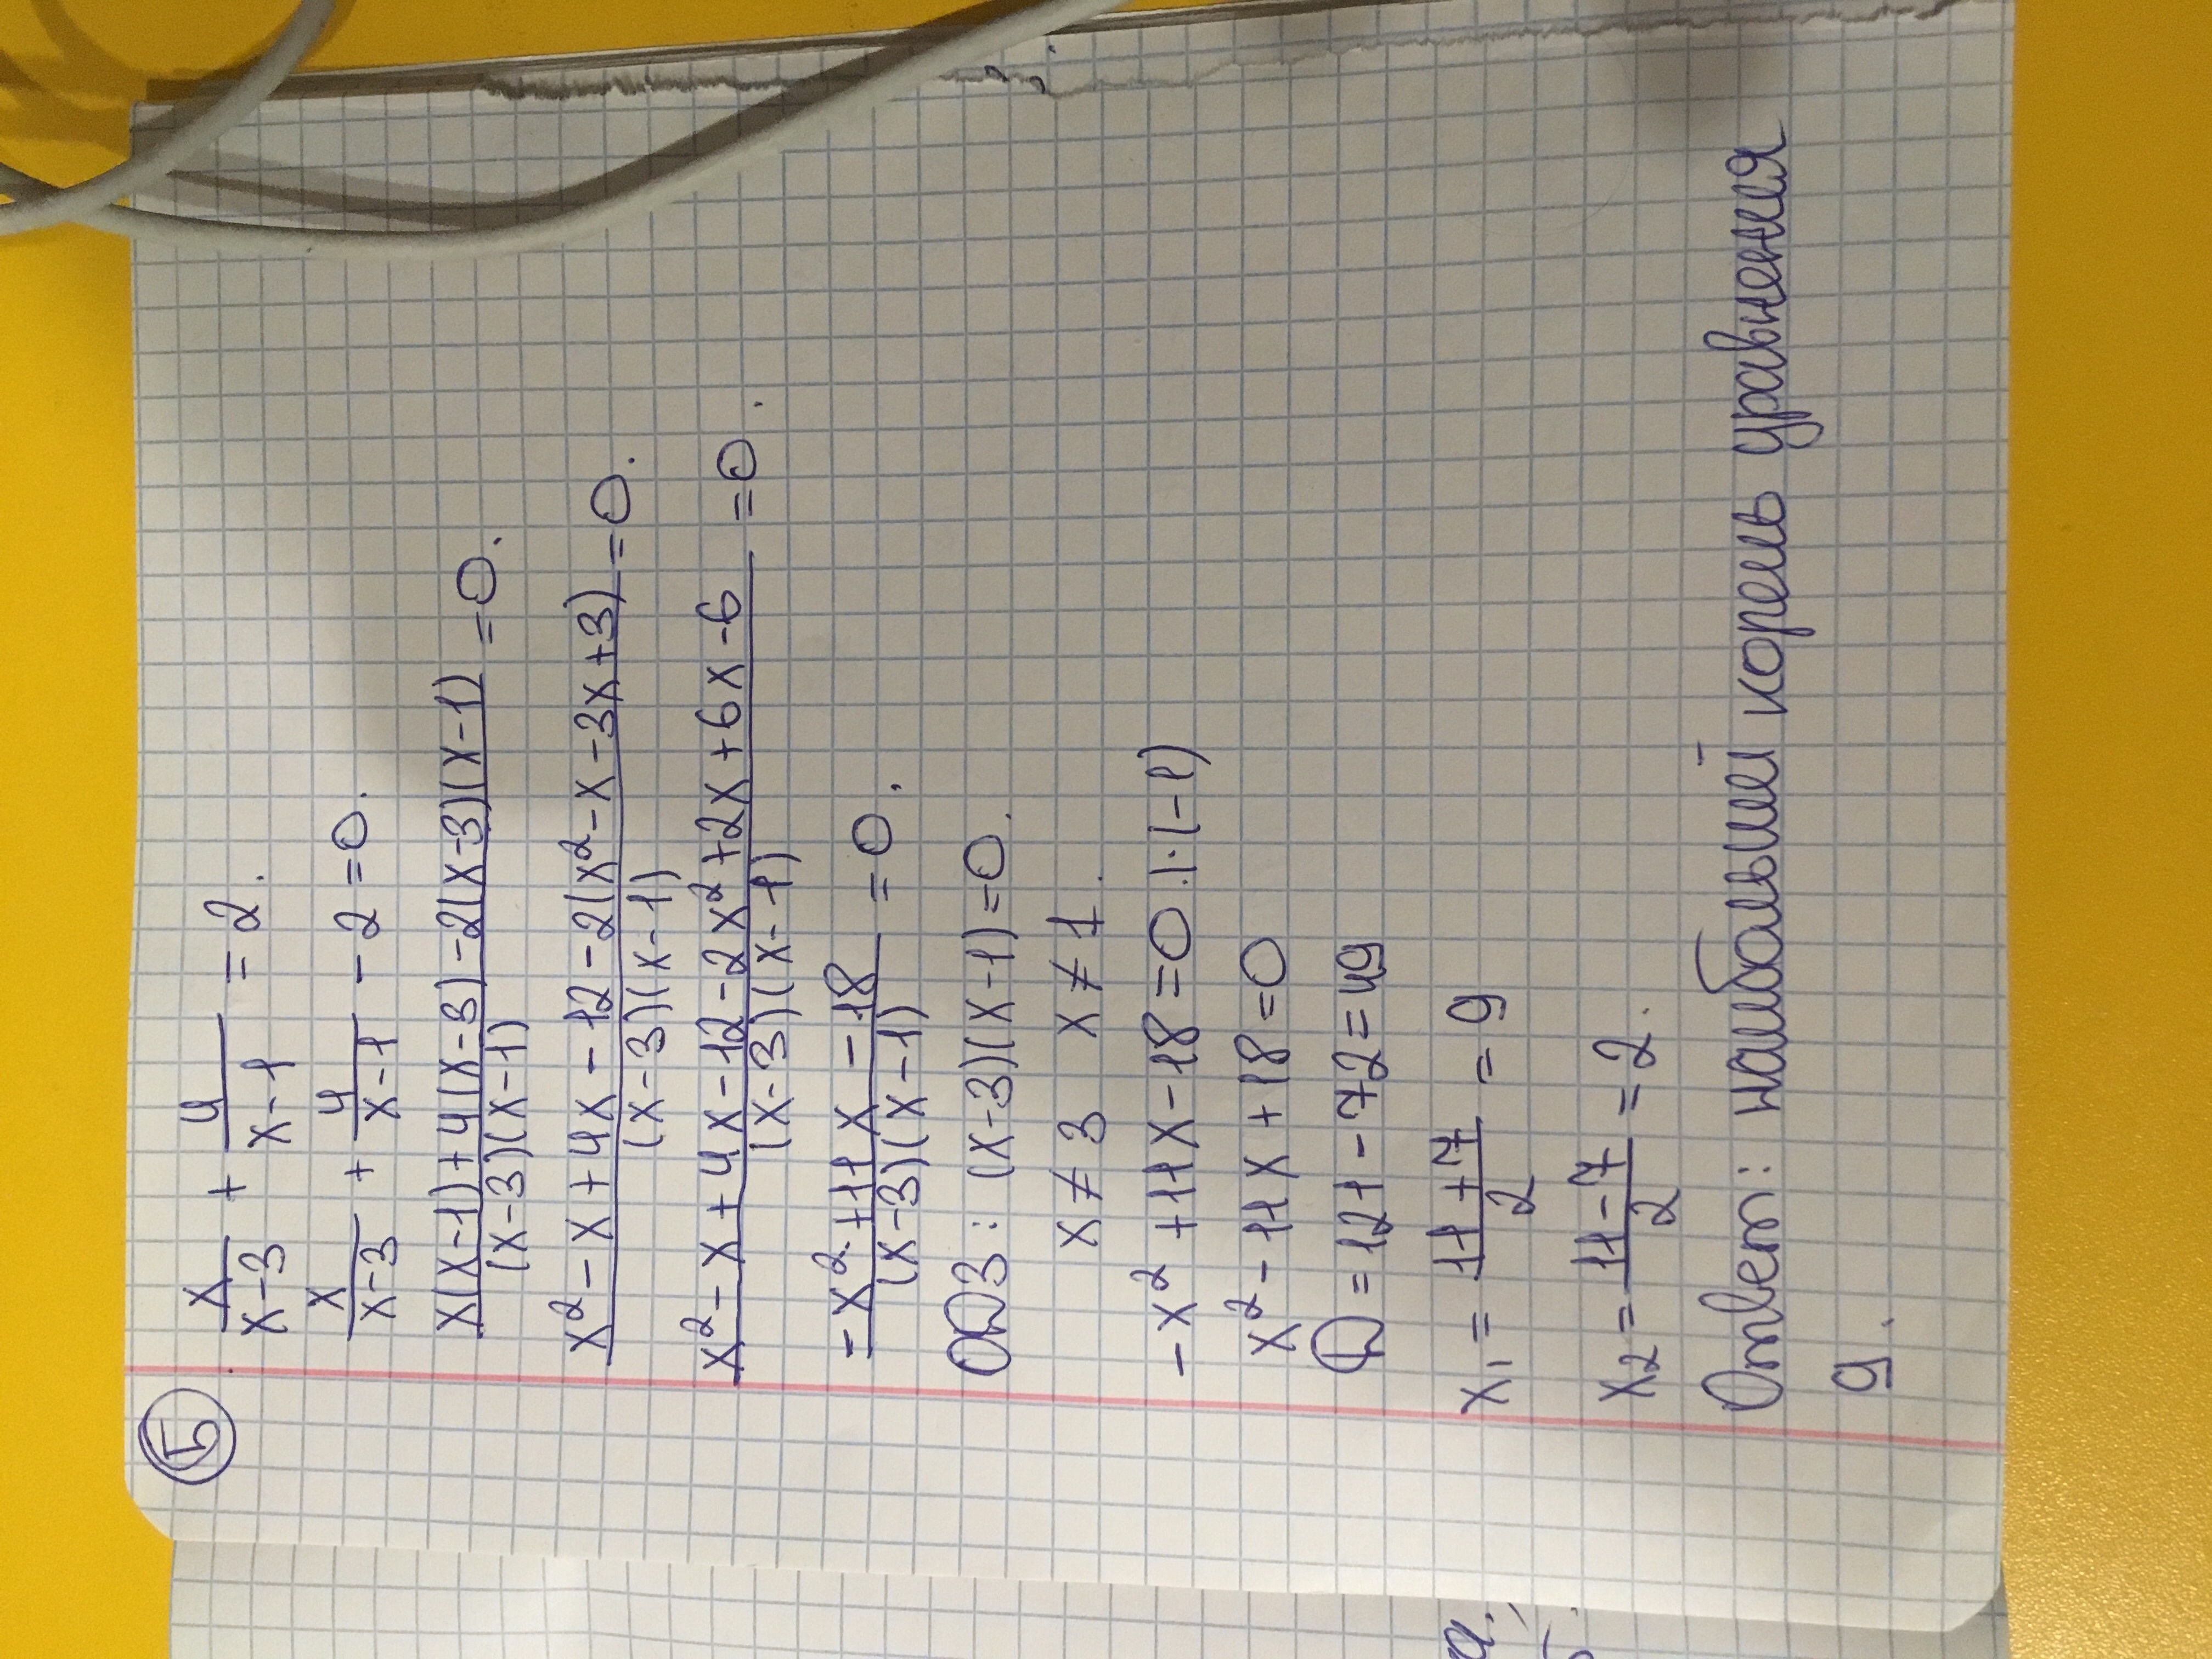 5
x/(x-3) + 4/(x-1) = 2.
x/(x-3) + 4/(x-1) - 2 = 0.
(x(x-1)+4(x-3)-2(x-3)(x-1))/((x-3)(x-1)) = 0.
(x²-x+4x-12-2(x²-x-3x+3))/((x-3)(x-1)) = 0.
(x²-x+4x-12-2x²+2x+6x-6)/((x-3)(x-1)) = 0.
(-x²+11x-18)/((x-3)(x-1)) = 0.
ОДЗ: (x-3)(x-1)=0.
x≠3 x≠1.
-x²+11x-18=0.|·(-1)
x²-11x+18=0
D=121-72=49
x₁ = (11+7)/2 = 9
x₂ = (11-7)/2 = 2.
Ответ: наибольший корень уравнения
9.